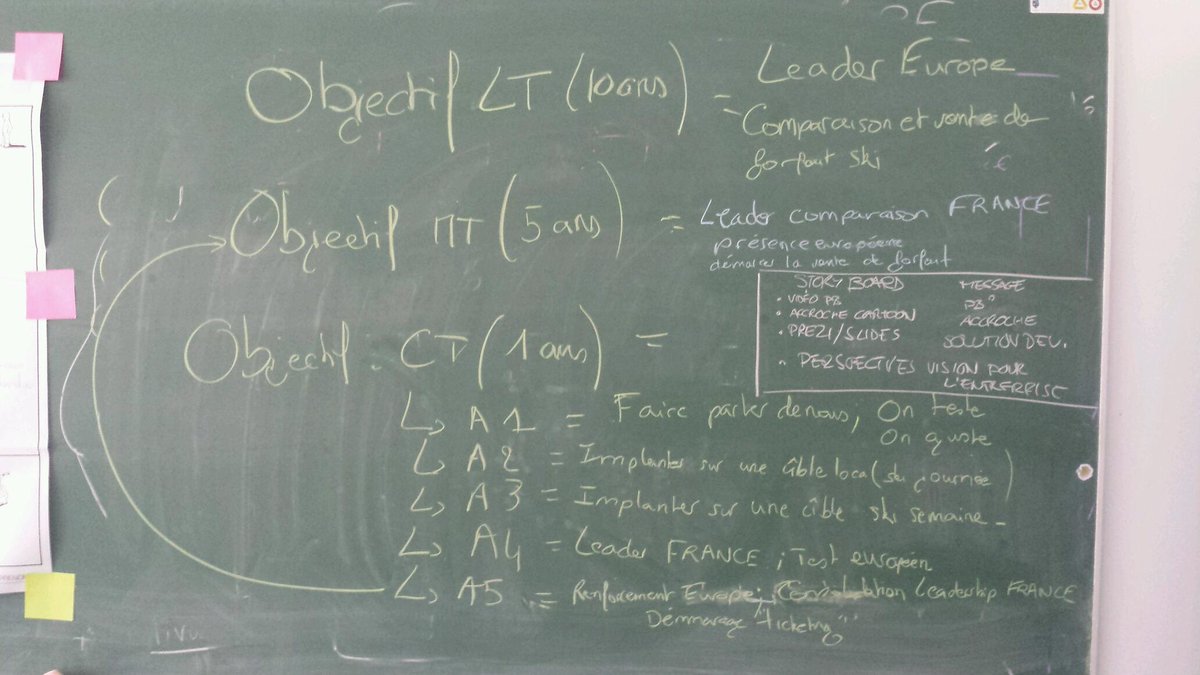 Objectif LT (10 ans) = Leader Europe
Comparaison et vente de
forfait ski
Objectif MT (5 ans) = Leader comparaison FRANCE
présence européenne
démarrer la vente de forfait
STORY BOARD MESSAGE
• VIDÉO PB PB°
• ACCROCHE CARTOON ACCROCHE
• PREZI/SLIDES SOLUTION DEV.
• PERSPECTIVES VISION POUR
L'ENTREPRISE
Objectif CT (1 ans) =
↳ A1 = Faire parler de nous, On teste
On ajuste
↳ A2 = Implanter sur une cîble local (ski journée)
↳ A3 = Implanter sur une cîble ski semaine
↳ A4 = Leader FRANCE ; Test européen
↳ A5 = Renforcement Europe; Consolidation Leadership FRANCE
Démmarage "ticketing"